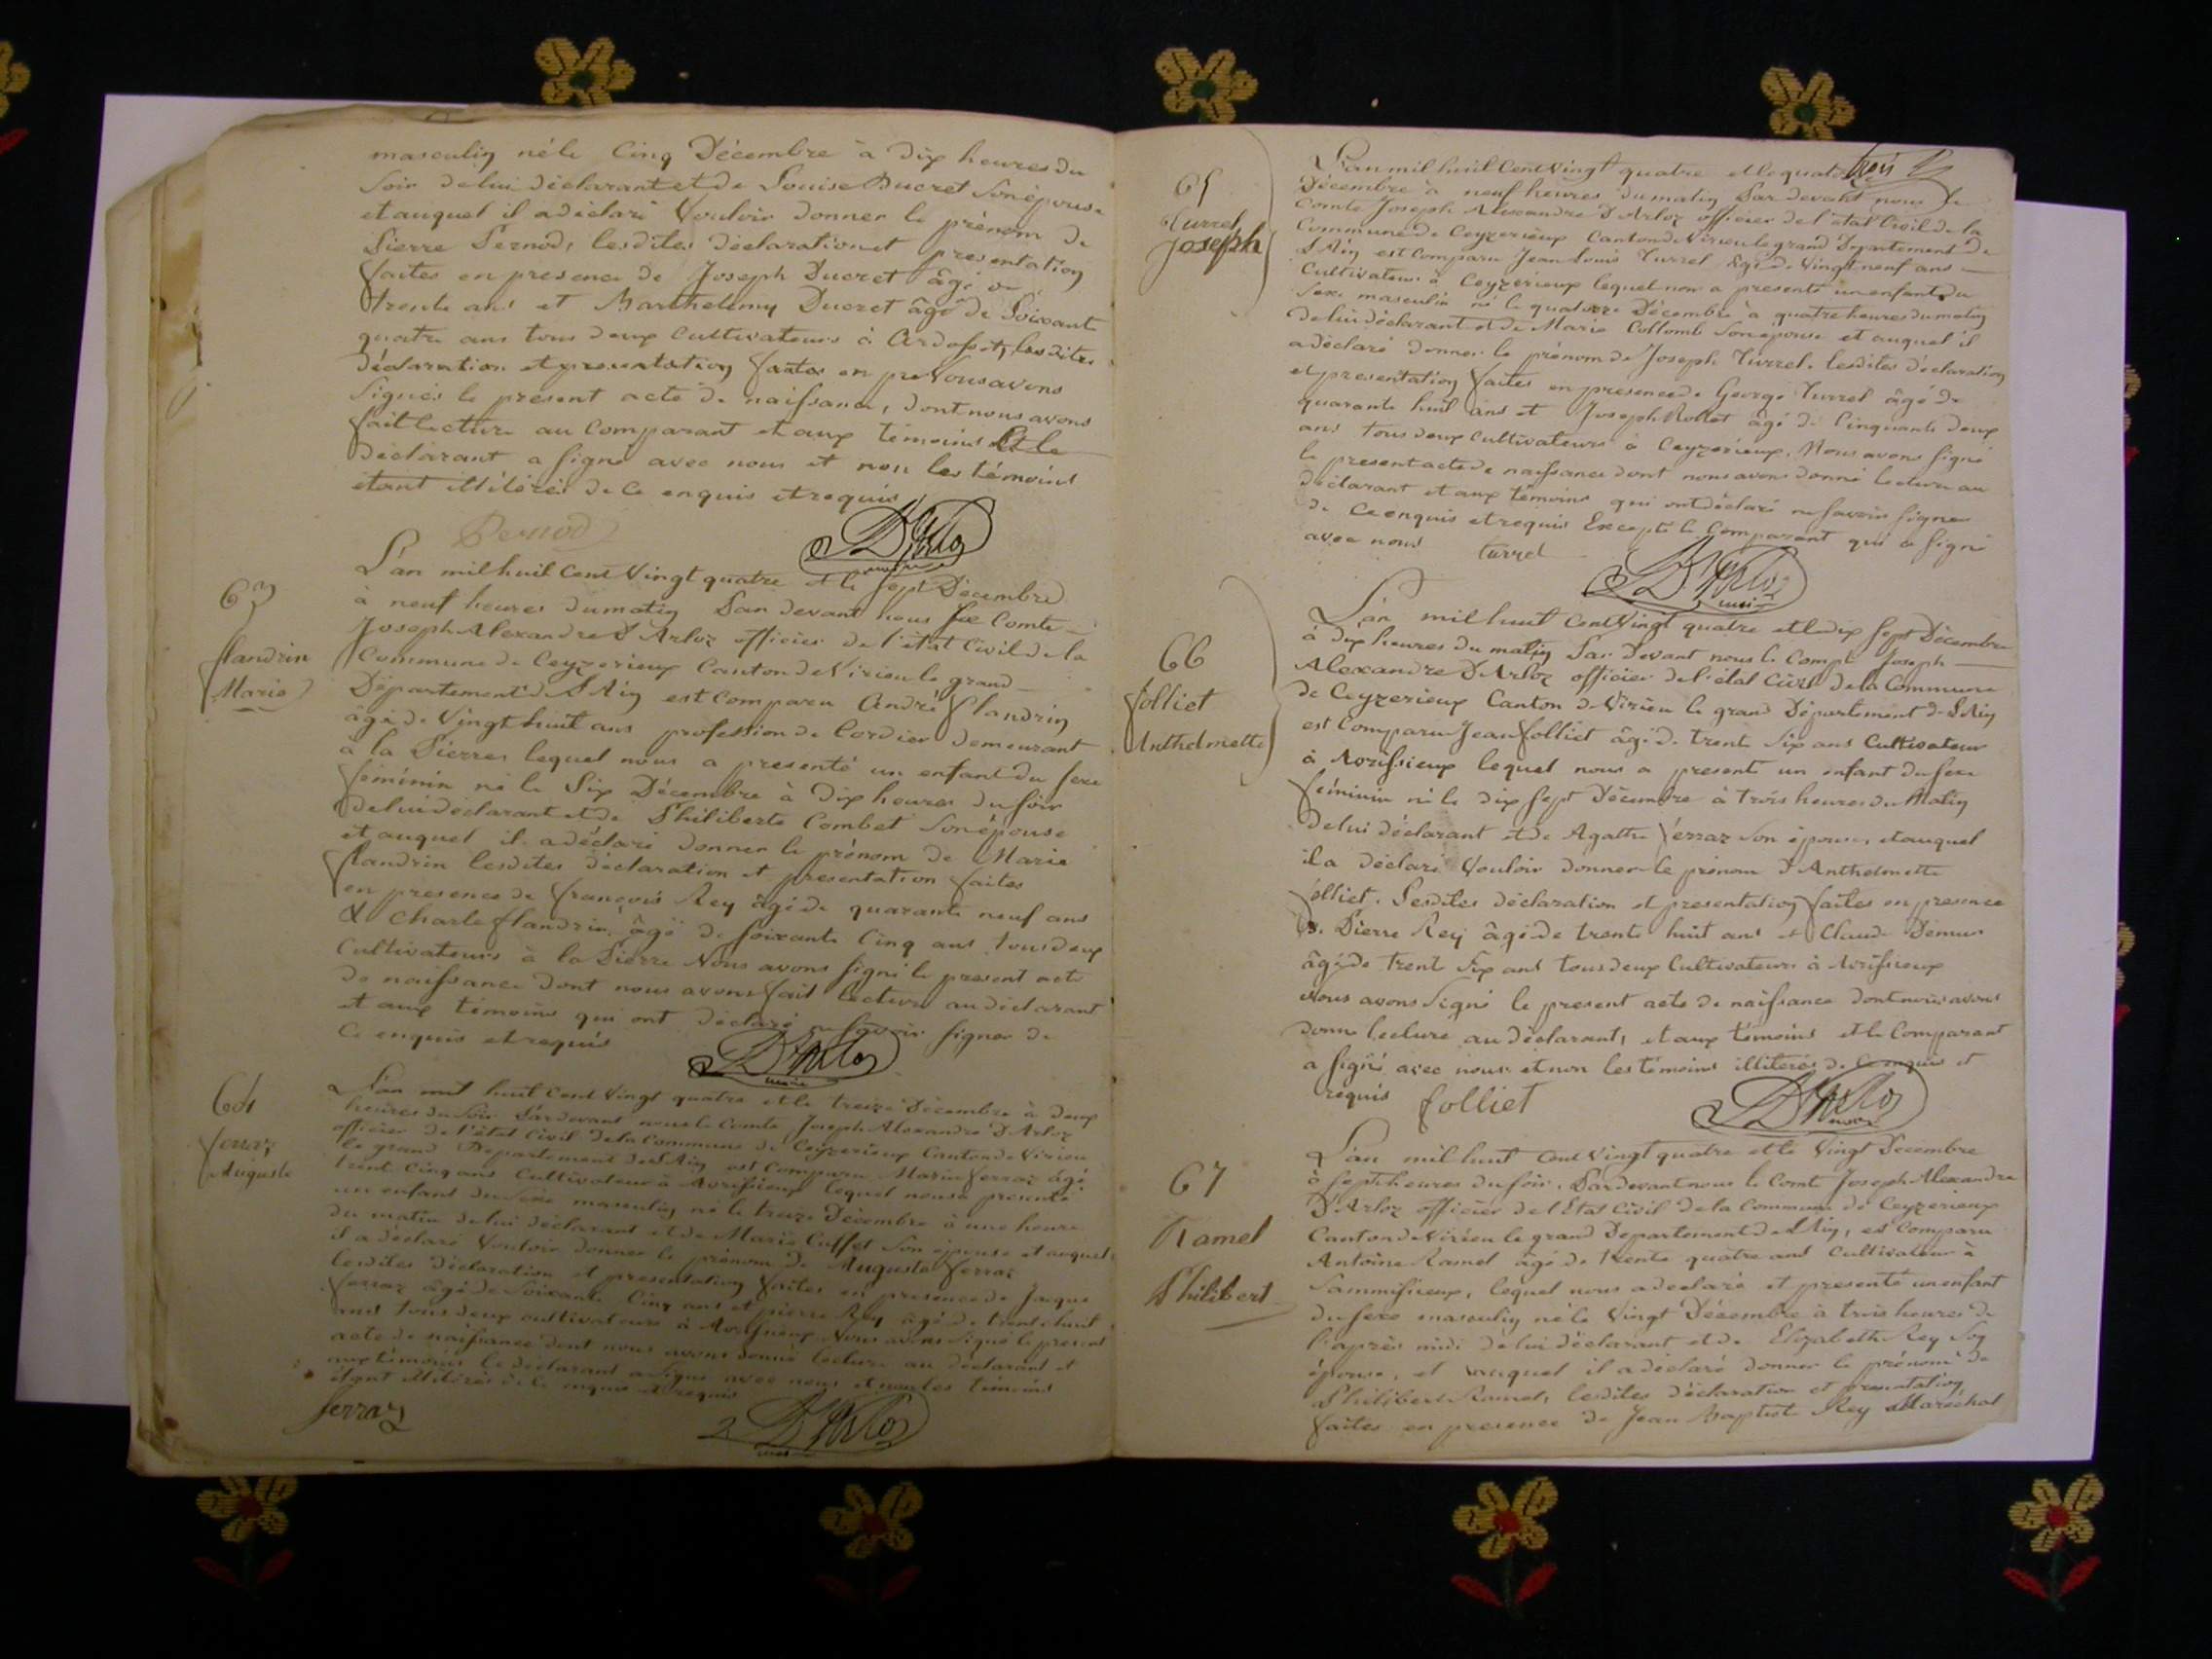 masculin né le Cinq Décembre à Dix heures du
Soir de lui déclarant et de Louise Ducret Son épouse
et auquel il a déclaré Vouloir donner le prénom de
Pierre Pernod, lesdites déclaration et presentation
faites en presence de Joseph Ducret âgé de
trente ans et Barthelemy Ducret âgé de Soixante
quatre ans tous deux Cultivateurs à Ardosset, lesdites
déclaration et presentation faites en pre Nous avons
Signés le présent acte de naissance, dont nous avons
fait lecture au Comparant et aux témoins Et le
déclarant a signé avec nous et non les témoins
étant illitérés de Ce enquis et requis
Pernod
D'Arloz
maire
63
flandrin
Marie
L'an mil huit Cent Vingt quatre et le Sept Décembre
à neuf heures du matin Par devant nous Le Comte
Joseph Alexandre D'Arloz officier de l'état Civil de la
Commune de Ceyzerieux Canton de Virieu le grand
Département de L'Ain est Comparu André flandrin
âgé de Vingt huit ans profession de Cordier demeurant
à la Pierre lequel nous a presenté un enfant du sexe
féminin né le Six Décembre à Dix heures du soir
de lui déclarant et de Philiberte Combet Son épouse
et auquel il a déclaré donner le prénom de Marie
flandrin lesdites déclaration et presentation faites
en presence de françois Rey âgé de quarante neuf ans
& Charle flandrin, âgé de soixante Cinq ans tous deux
Cultivateurs à la Pierre Nous avons signé le present acte
de naissance dont nous avons fait lecture au déclarant
et aux témoins qui ont déclaré ne savoir signer de
Ce enquis et requis
D'Arloz
maire
64
ferraz
Auguste
L'an mil huit Cent Vingt quatre et le treize Décembre à deux
heures du Soir Par devant nous le Comte Joseph Alexandre D'Arloz
officier de l'état Civil de la Commune de Ceyzerieux Canton de Virieu
le grand Département de L'Ain est Comparu Marin ferraz âgé
trente Cinq ans Cultivateur à Avrissieux lequel nous a presenté
un enfant du Sexe masculin né le treize Décembre à une heure
du matin de lui déclarant et de Marie Cuffet Son épouse et auquel
il a déclaré Vouloir donner le prénom de Auguste ferraz
lesdites déclaration et presentation faites en presence de Jaque
ferraz âgé de Soixante Cinq ans et pierre Rey âgé de trente huit
ans tous deux cultivateurs à Avrissieux Nous avons Signé le present
acte de naissance dont nous avons donné lecture au déclarant et
aux témoins le déclarant a Signé avec nous et non les témoins
étant illitérés de Ce enquis et requis
ferraz
D'Arloz
maire
trois
65
Turrel
Joseph
L'an mil huit Cent Vingt quatre et le quatorze
Décembre à neuf heures du matin Par devant nous Le
Comte Joseph Alexandre D'Arloz officier de l'état Civil de la
Commune de Ceyzerieux Canton de Virieu le grand Département de
L'Ain est Comparu Jean Louis Turrel âgé de Vingt neuf ans
Cultivateur à Ceyzerieux lequel nous a presenté un enfant du
Sexe masculin né le quatorze Décembre à quatre heures du matin
de lui déclarant et de Marie Collomb Son épouse et auquel il
a déclaré donner le prénom de Joseph Turrel. lesdites déclaration
et presentation faites en presence de George Turrel âgé de
quarante huit ans et Joseph Rollet âgé de Cinquante deux
ans tous deux Cultivateurs à Ceyzerieux, Nous avons signé
le present acte de naissance dont nous avons donné lecture au
déclarant et aux témoins qui ont déclaré ne savoir signer
de Ce enquis et requis Excepté le Comparant qui a signé
avec nous
turrel
D'Arloz
maire
66
folliet
Anthelmette
L'an mil huit Cent Vingt quatre et le dix Sept Décembre
à dix heures du matin Par Devant nous le Compte Joseph
Alexandre D'Arloz officier de l'état Civil de la Commune
de Ceyzerieux Canton de Virieu le grand Département de L'Ain
est Comparu Jean folliet âgé de trente Six ans Cultivateur
à Avrissieux lequel nous a presenté un enfant du sexe
féminin né le dix sept Décembre à trois heures du Matin
de lui déclarant et de Agathe ferraz son épouse, et auquel
il a déclaré Vouloir donner le prénom D'Anthelmette
folliet. Lesdites déclaration et presentation faites en presence
de Pierre Rey âgé de trente huit ans et Claude
âgé de trente Six ans tous deux Cultivateurs à Avrissieux
Nous avons Signé le present acte de naissance dont nous avons
donné lecture au déclarant, et aux témoins et le Comparant
a signé, avec nous et non les témoins illitérés de Ce enquis et
requis
folliet
D'Arloz
maire
67
Ramel
Philibert
L'an mil huit Cent Vingt quatre et le Vingt Décembre
à sept heures du soir. Par devant nous le Comte Joseph Alexandre
D'Arloz officier de l'Etat Civil de la Commune de Ceyzerieux
Canton de Virieu le grand Département de L'Ain, est Comparu
Antoine Ramel âgé de trente quatre ans Cultivateur à
Sammissieux, lequel nous a declaré et presenté un enfant
du sexe masculin né le Vingt Décembre à trois heures de
l'après midi de lui déclarant et de Elizabeth Rey Son
épouse, et auquel il a déclaré donner le prénom de
Philibert Ramel, lesdites déclaration et presentation
faites en presence de Jean Baptist Rey Maréchal